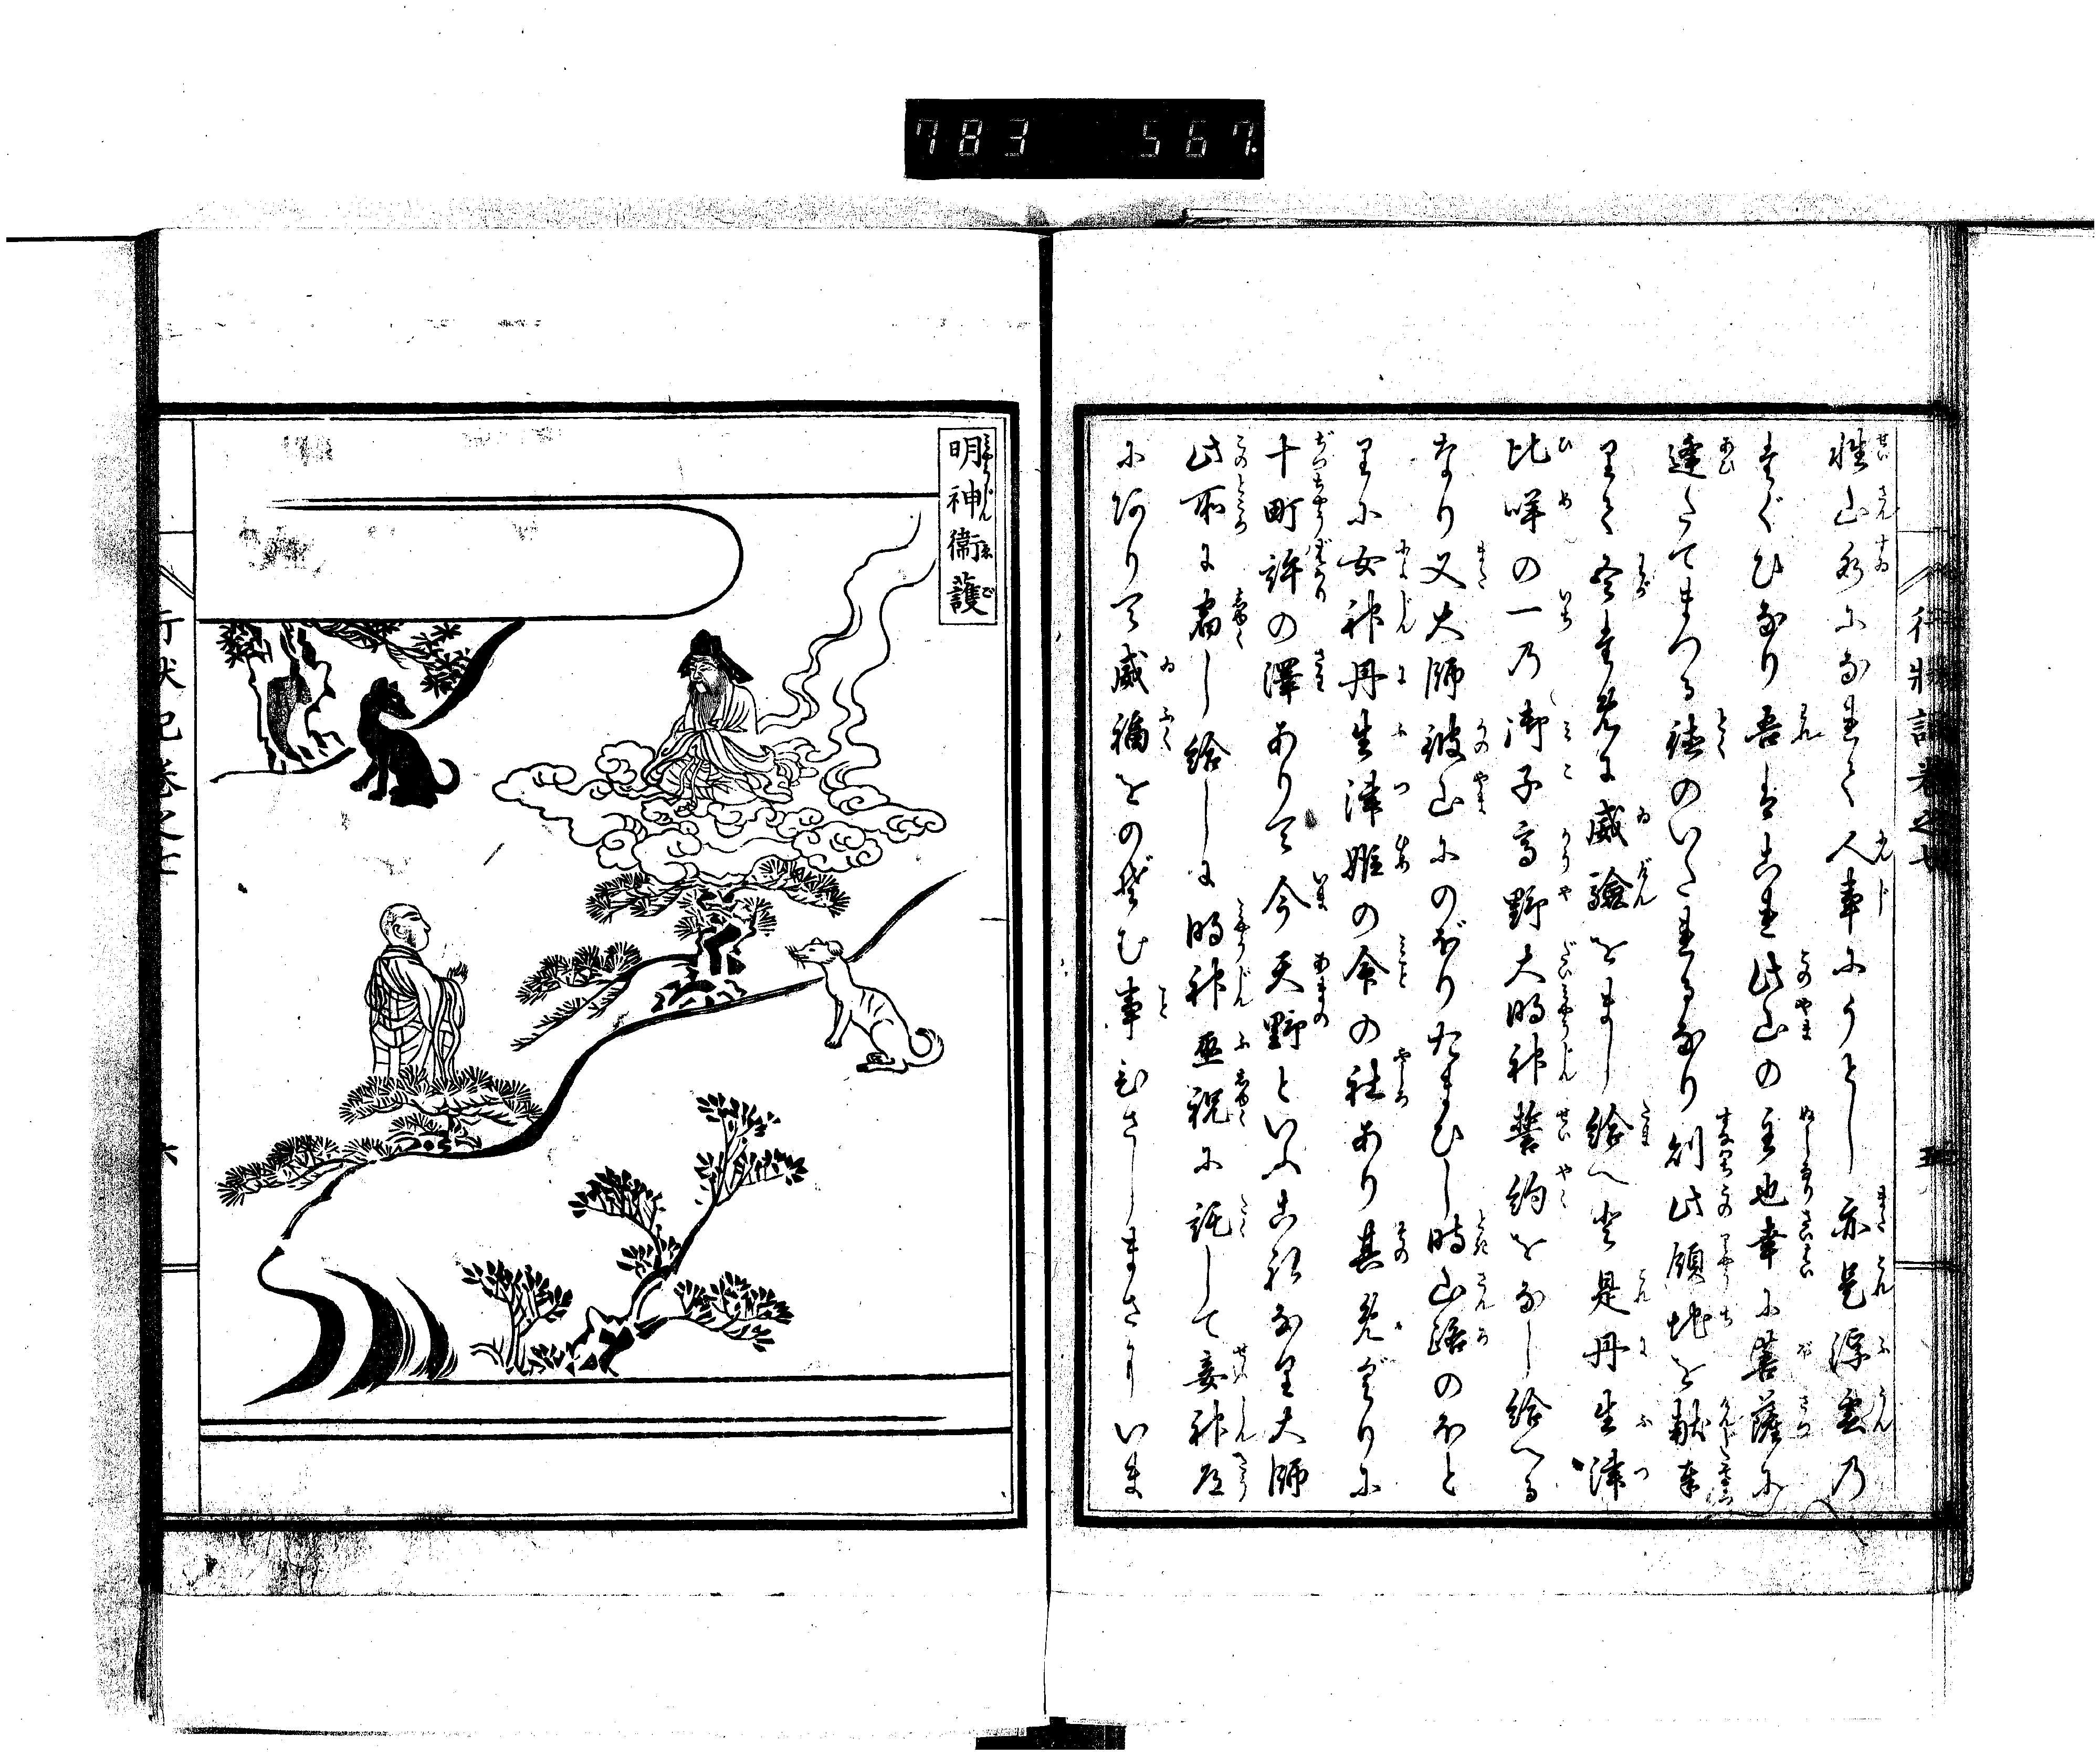 783 567
行状記巻之七
五
性山水になれて人事にうとし亦是浮雲の
たぐひなり吾はこれ此山の主也幸に菩薩に
逢たてまつる徳のいたれるなり則此領地を献奉
りて吾たぶんに威験をまし給へと是丹生津
比咩の一乃御子高野大明神誓約をなし給へる
なり又大師彼山にのぼりたまひし時山路のほと
りに女神丹生津姫の命の社あり其めぐりに
十町許の澤ありて今天野といふこれなり大師
此所に宿し給しに明神巫祝に託して妾神道
にありて威福をのぞむ事ひさしまさにいま
明神衛護
行状記巻之七
六